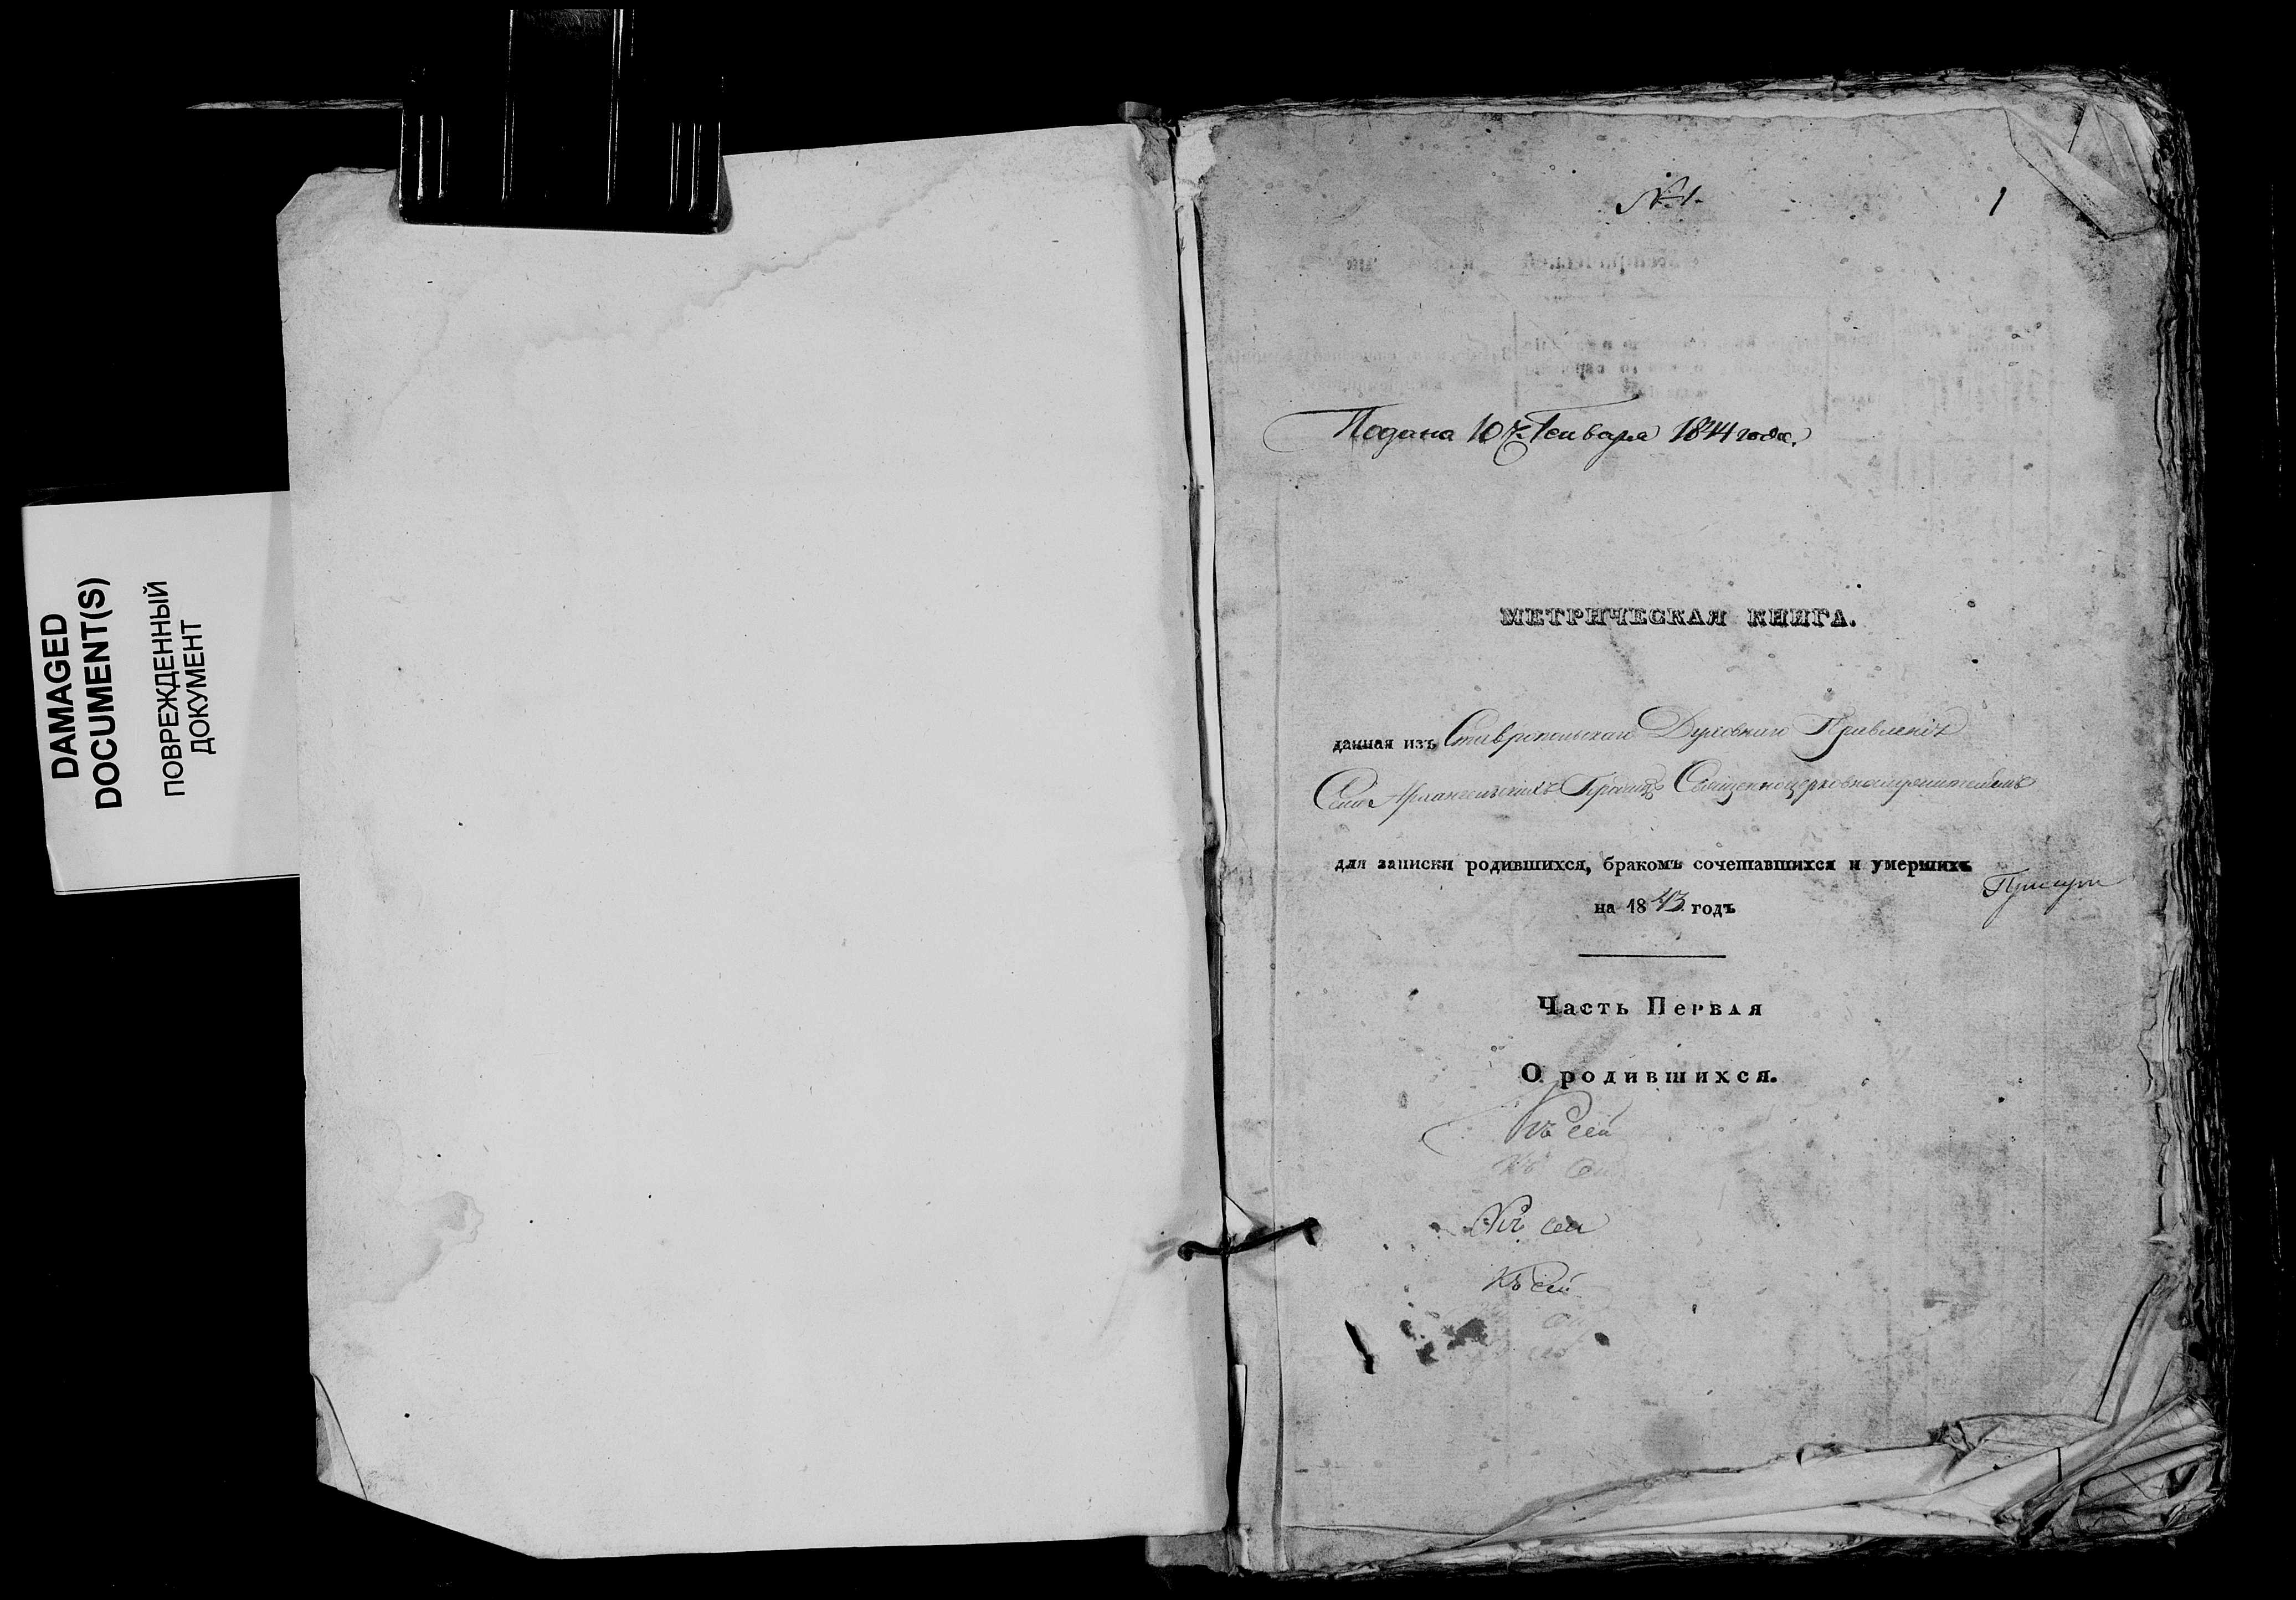 DAMAGED
DOCUMENT(S)
ПОВРЕЖДЕННЫЙ
ДОКУМЕНТ
№ 1.
1
Подана 10 Генваря 1844 года.
МЕТРИЧЕСКАЯ КНИГА.
данная изъ Ставропольскаго Духовнаго Правленія
Села Архангельскихъ Священноцерковнослужителямъ
для записки родившихся, бракомъ сочетавшихся и умершихъ
на 1843 годъ
Часть Первая
О родившихся.
Къ сей
Къ сей
Къ сей
Къ сей